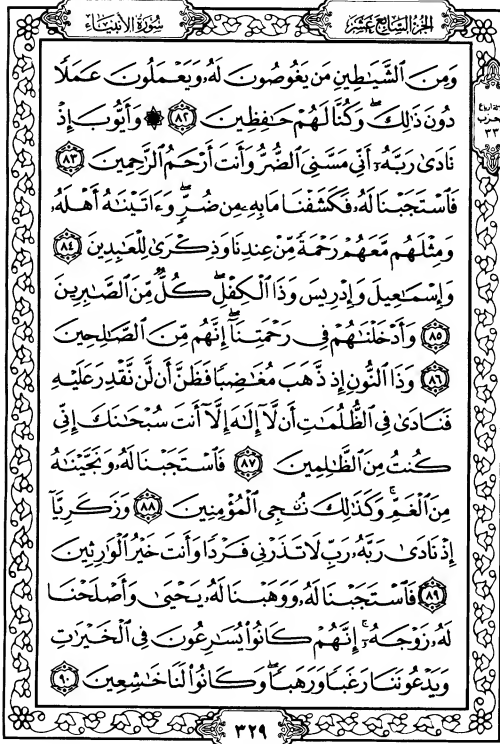 سُورَةُ الأَنبِيَاء
الجُزءُ السَّابِعَ عَشَرَ
وَمِنَ ٱلشَّيَٰطِينِ مَن يَغُوصُونَ لَهُۥ وَيَعْمَلُونَ عَمَلًا
دُونَ ذَٰلِكَ ۖ وَكُنَّا لَهُمْ حَٰفِظِينَ ٨٢ ۞ وَأَيُّوبَ إِذْ
نَادَىٰ رَبَّهُۥٓ أَنِّي مَسَّنِيَ ٱلضُّرُّ وَأَنتَ أَرْحَمُ ٱلرَّٰحِمِينَ ٨٣
فَٱسْتَجَبْنَا لَهُۥ فَكَشَفْنَا مَا بِهِۦ مِن ضُرٍّ ۖ وَءَاتَيْنَٰهُ أَهْلَهُۥ
وَمِثْلَهُم مَّعَهُمْ رَحْمَةً مِّنْ عِندِنَا وَذِكْرَىٰ لِلْعَٰبِدِينَ ٨٤
وَإِسْمَٰعِيلَ وَإِدْرِيسَ وَذَا ٱلْكِفْلِ ۖ كُلٌّ مِّنَ ٱلصَّٰبِرِينَ
٨٥ وَأَدْخَلْنَٰهُمْ فِي رَحْمَتِنَآ ۖ إِنَّهُم مِّنَ ٱلصَّٰلِحِينَ
٨٦ وَذَا ٱلنُّونِ إِذ ذَّهَبَ مُغَٰضِبًا فَظَنَّ أَن لَّن نَّقْدِرَ عَلَيْهِ
فَنَادَىٰ فِي ٱلظُّلُمَٰتِ أَن لَّآ إِلَٰهَ إِلَّآ أَنتَ سُبْحَٰنَكَ إِنِّي
كُنتُ مِنَ ٱلظَّٰلِمِينَ ٨٧ فَٱسْتَجَبْنَا لَهُۥ وَنَجَّيْنَٰهُ
مِنَ ٱلْغَمِّ ۚ وَكَذَٰلِكَ نُۨجِي ٱلْمُؤْمِنِينَ ٨٨ وَزَكَرِيَّآ
إِذْ نَادَىٰ رَبَّهُۥ رَبِّ لَا تَذَرْنِي فَرْدًا وَأَنتَ خَيْرُ ٱلْوَٰرِثِينَ
٨٩ فَٱسْتَجَبْنَا لَهُۥ وَوَهَبْنَا لَهُۥ يَحْيَىٰ وَأَصْلَحْنَا
لَهُۥ زَوْجَهُۥٓ ۚ إِنَّهُمْ كَانُوا۟ يُسَٰرِعُونَ فِي ٱلْخَيْرَٰتِ
وَيَدْعُونَنَا رَغَبًا وَرَهَبًا ۖ وَكَانُوا۟ لَنَا خَٰشِعِينَ ٩٠
حزب
٣٣
٣٢٩